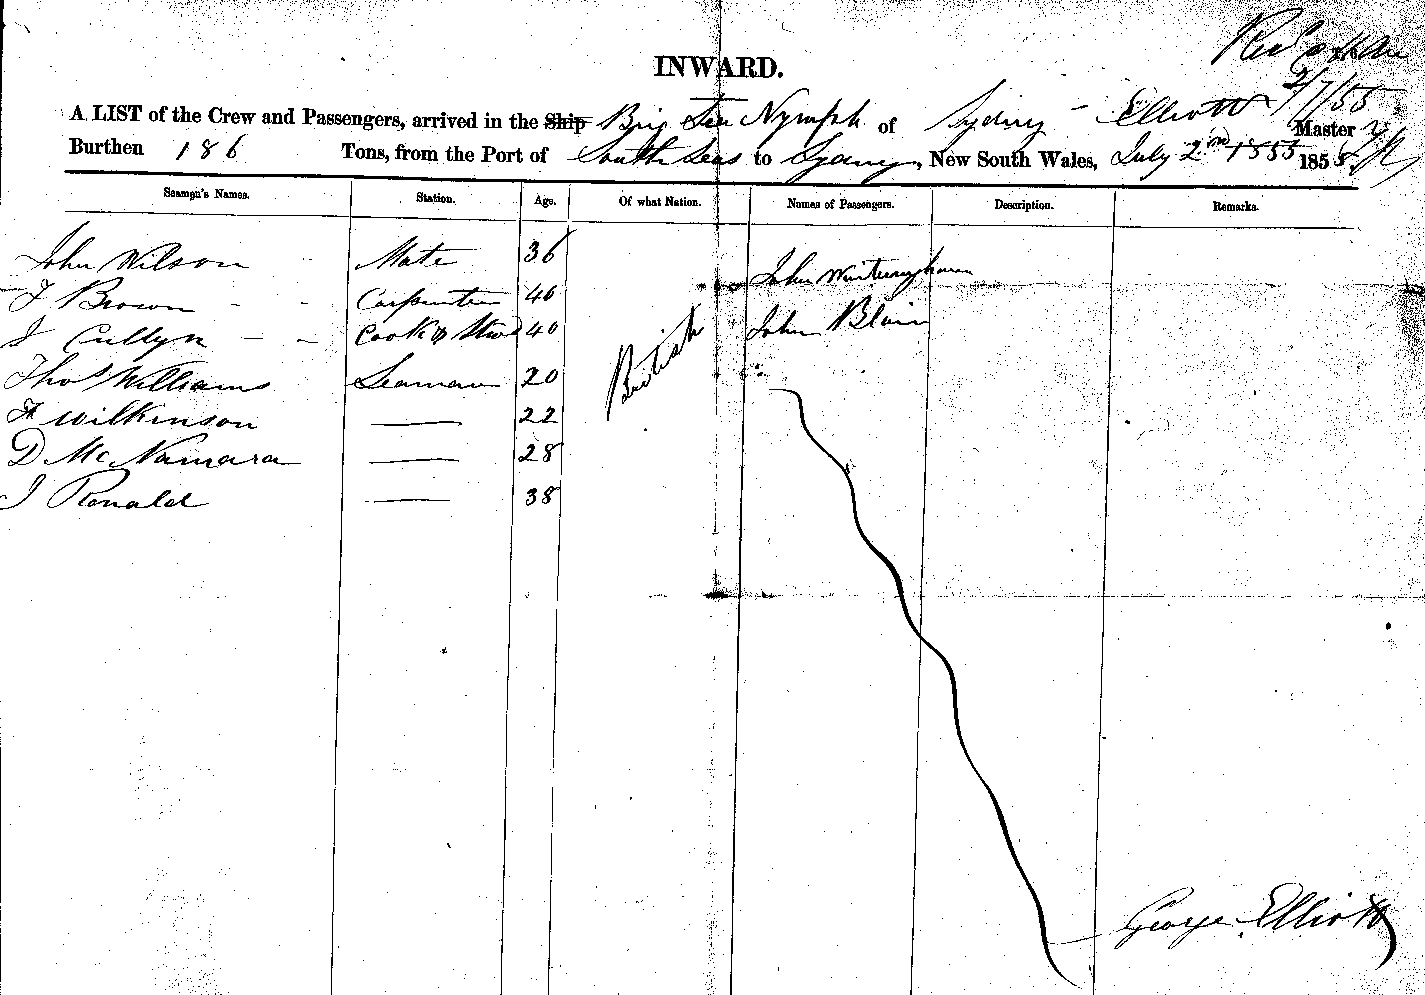 INWARD.
2/7/55
A LIST of the Crew and Passengers, arrived in the Ship Brig Sea Nymph of Sydney - Elliott Master
Burthen 186 Tons, from the Port of South Seas to Sydney, New South Wales, July 2nd 1855 1855
Seamen's Names. Station. Age. Of what Nation. Names of Passengers. Description. Remarks.
John Wilson Mate 36
John
T Brown Carpenter 46
J Cullyn Cook & Stwd 40 British John Blain
Thos Williams Seaman 20
H Wilkinson —— 22
D McNamara —— 28
J Ronald —— 38
George Elliott